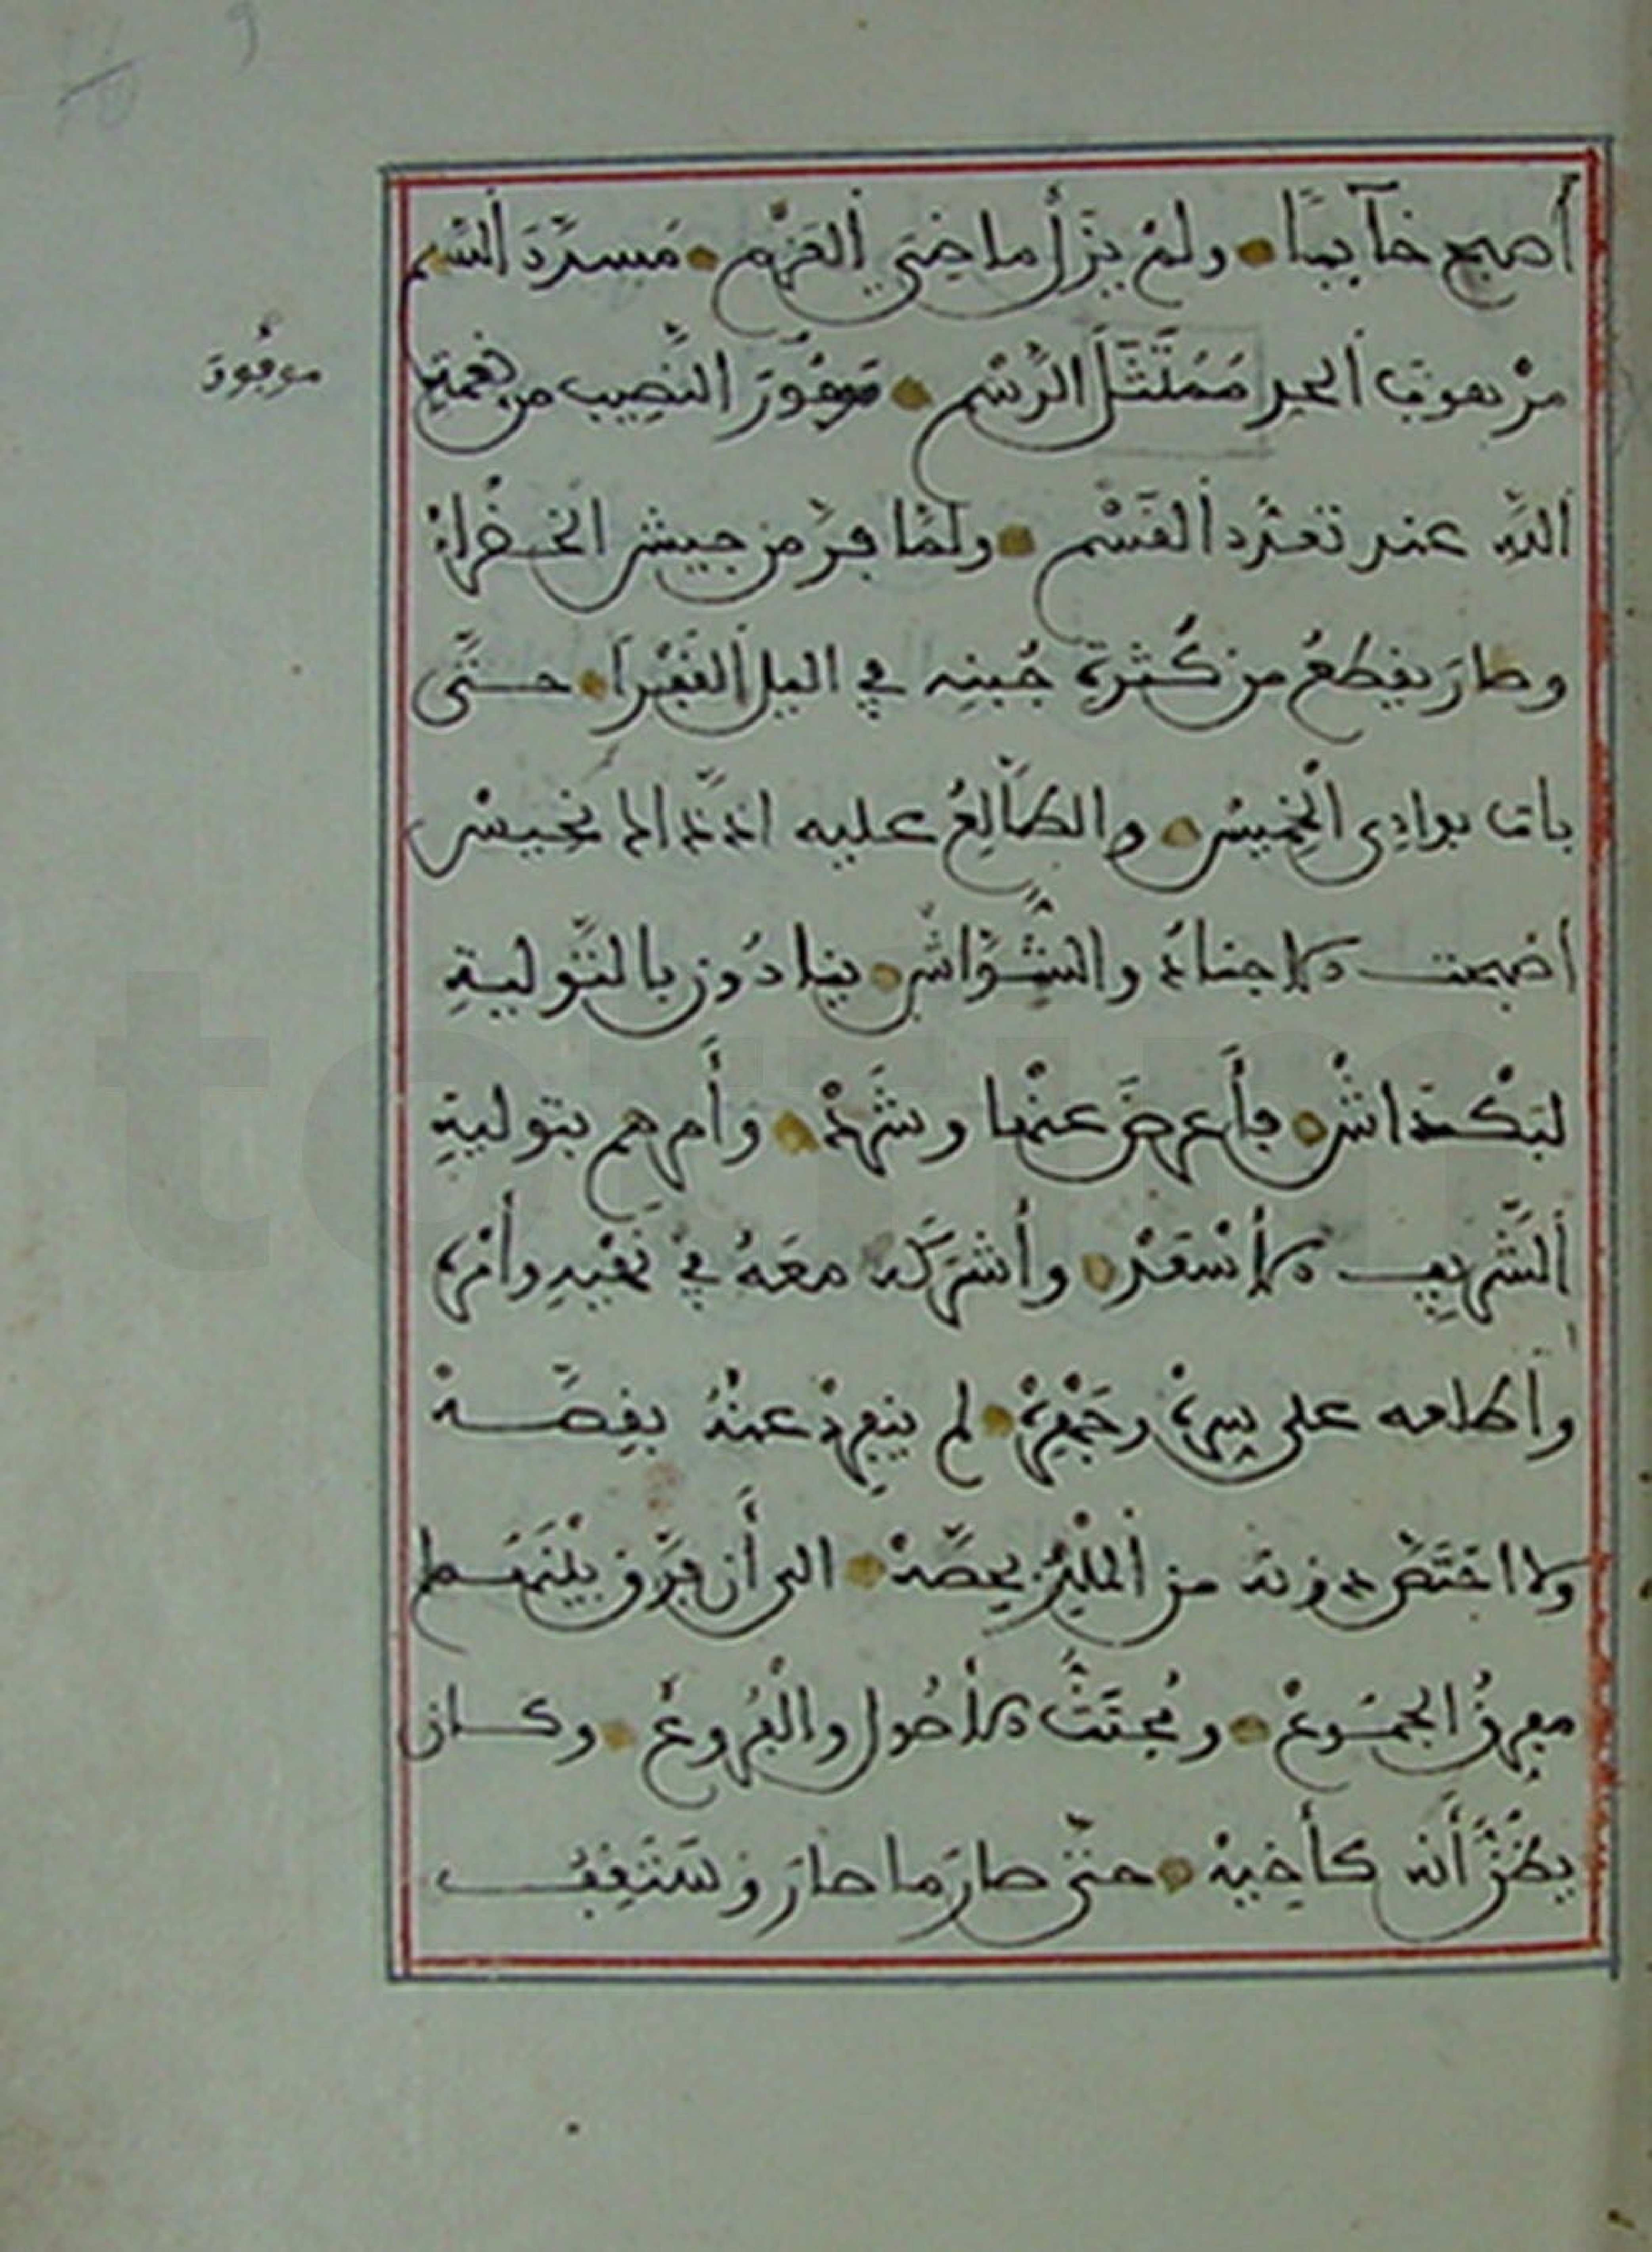 أصبح خآيبًا ولمْ يزَلْ ماضيَ العَزْم مسدَّدَ السَّهم
مرْهوبَ الحدِ مُمْتَثَلَ الرَّسْم موفُورَ النَّصِيب من نعمةِ
موفُورَ
اللهِ عند تعدُّد القَسْم ولمَّا فرَّ من جيش الخضراءْ
وطارَ يقطعُ من كُثرةِ جُبنِه في اليل القَفْرَا حتَّى
باتَ بوادِي الخميسْ والطَّالِعُ عليه
أضحت الاجنادُ والشَّوَاشْ ينادُون بالتَّوليةِ
لبَكْدَاشْ فأَعرضَ عنْها وشَهَدْ وأَمرهم بتوليةِ
الشَّريفِ الأَسْعَدْ وأشركه معَهُ في نَهْيهِ وأمْرِهْ
وأَطلعه على سِرِّهْ وجَهْرِهْ لم ينفردْ عنْهُ بقِصَّهْ
ولا اختَصَّ دونه من المُلْكِ بحِصَّهْ الى أَن فرَّق بيْنَهُما
مفرِّقُ الجمُوعْ ومُجتَثُّ الأُصُول والْفُروعْ وكان
يظُنُّ أَنه كأَخيهْ حتَّى صارَ ما صارَ وسَتَقِف